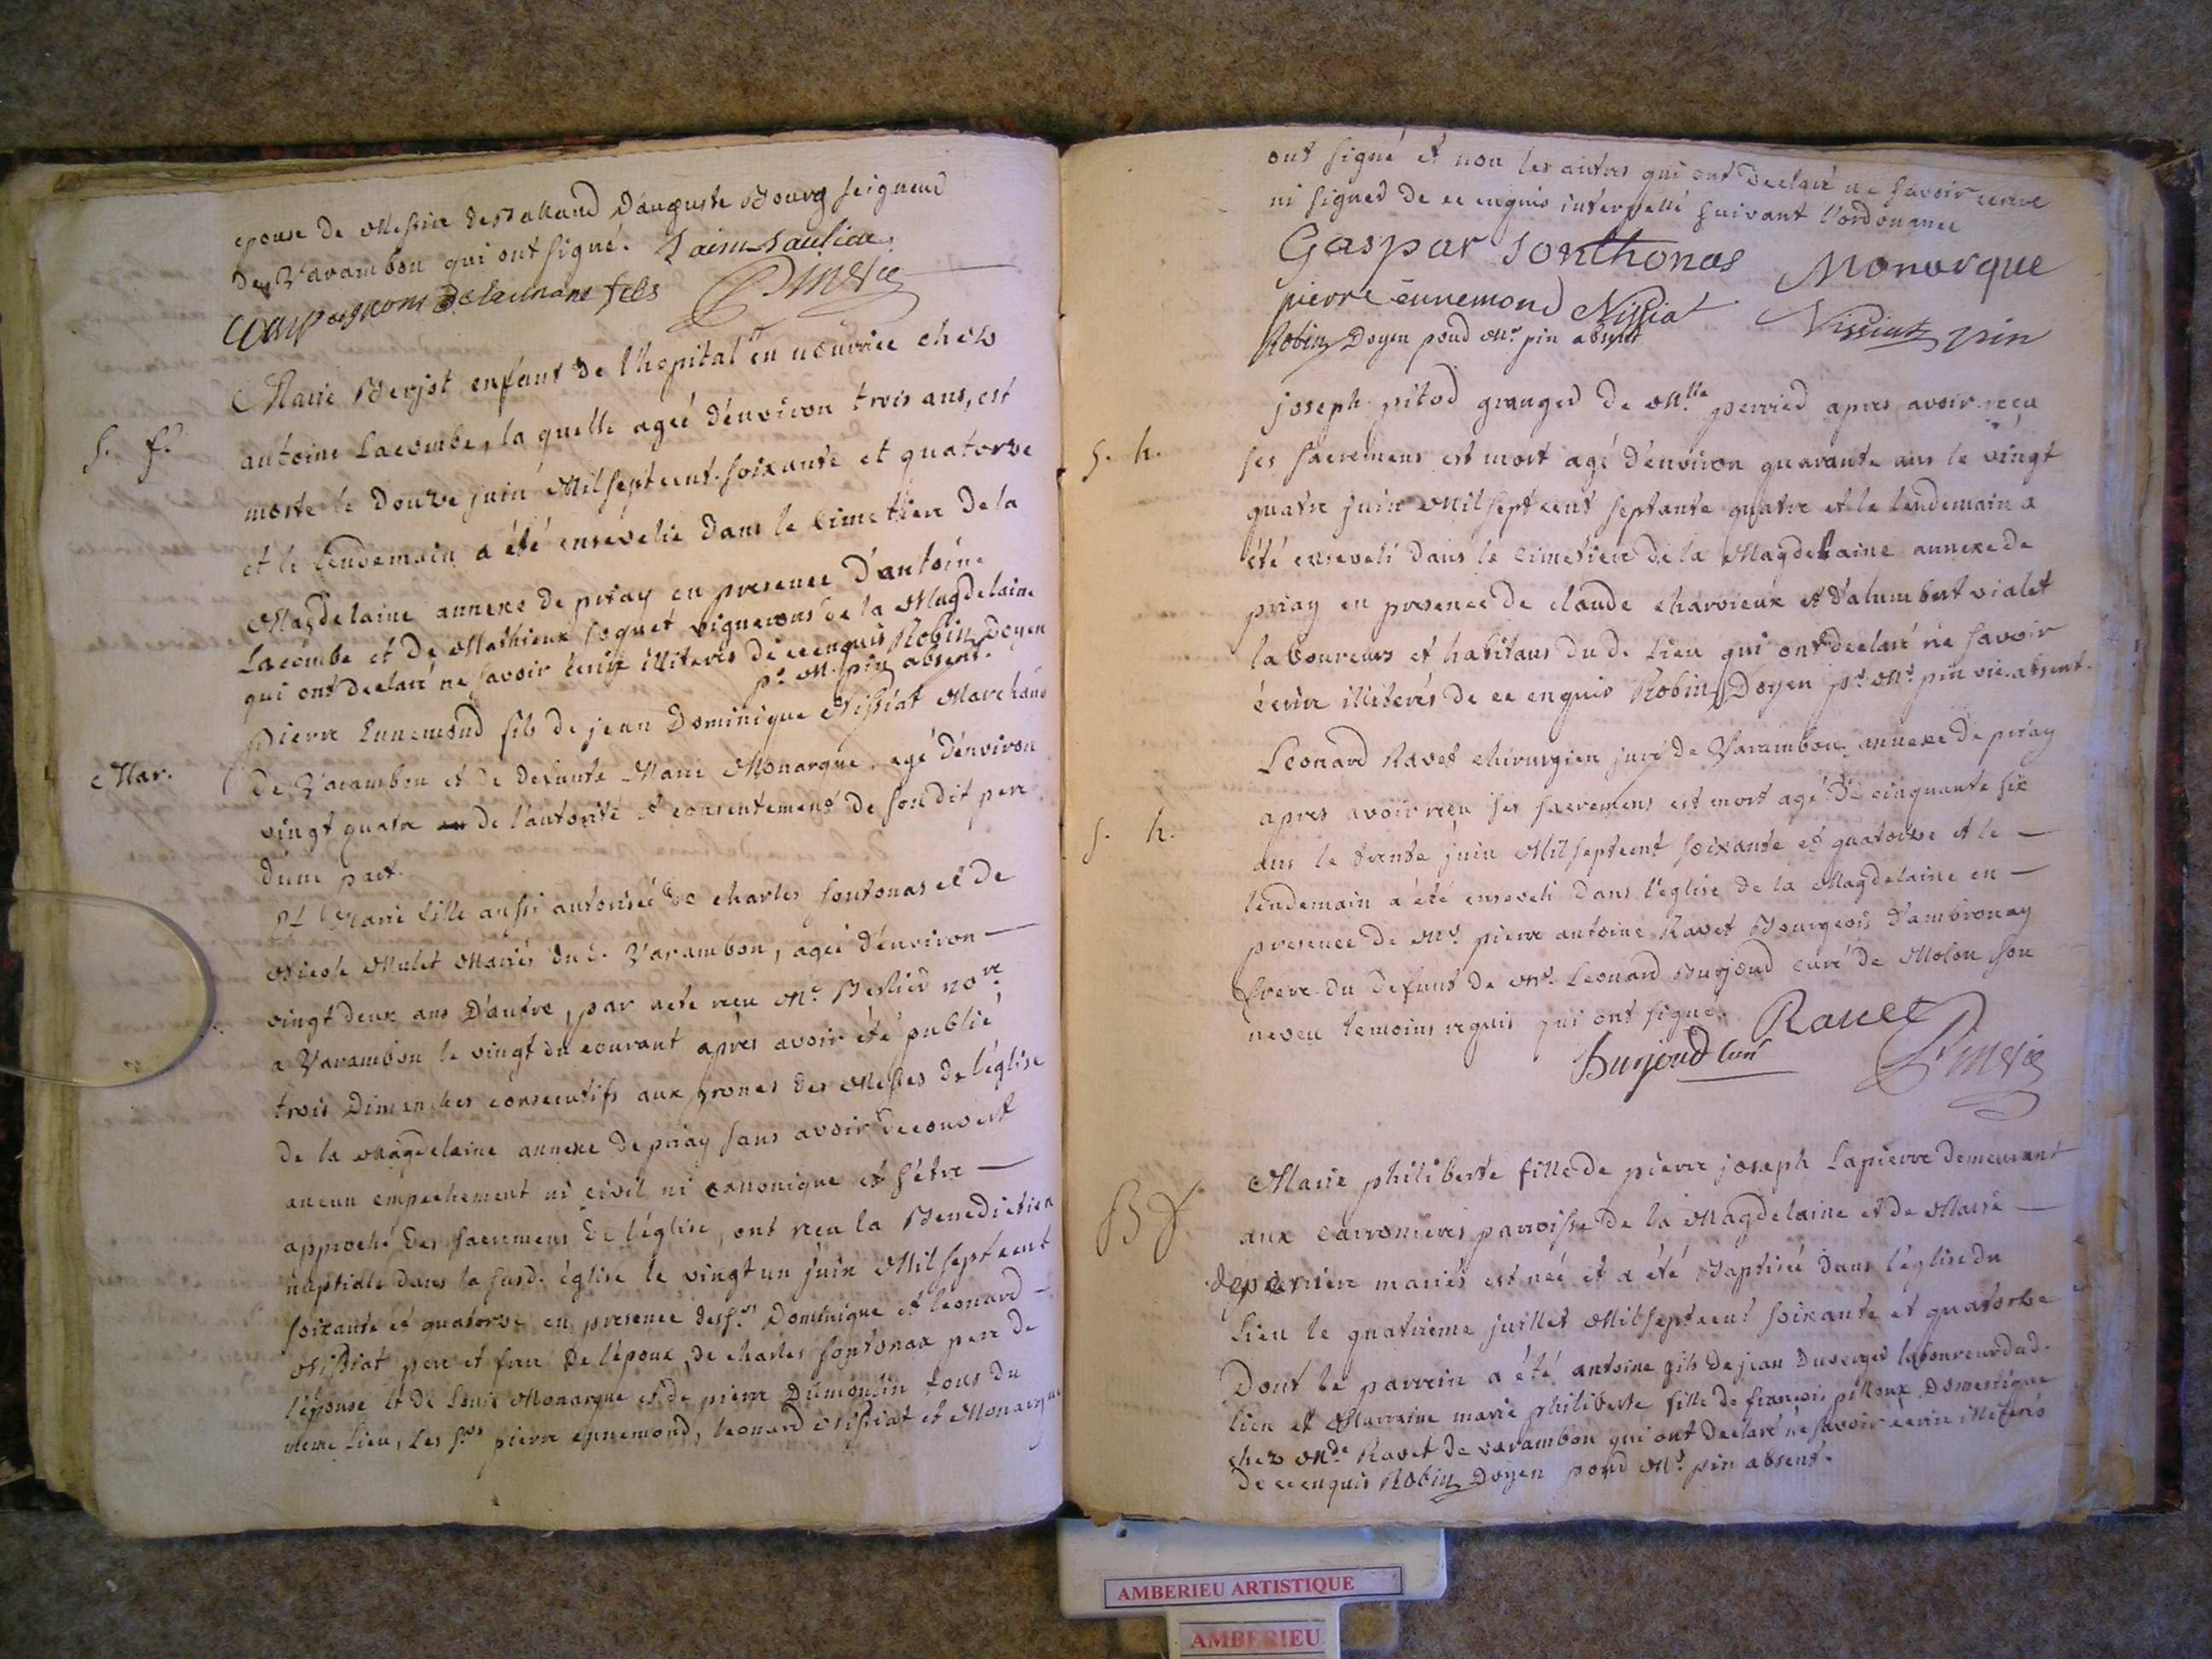 epouse de Messire de Balland D'auguste Bourg seigneur
de Varambon qui ont signé. Saint Saulieu
Compagnons Delaurans fils Pin vic
Marie Berjot enfant de l'hopital en nourrice chés
S. f. antoine Lacombe, la quelle agée d'environ trois ans, est
morte le Douze juin Mil sept cent soixante et quatorze
et le lendemain a été ensevelie dans le cimetiere de la
Magdelaine annexe de priay en presence d'antoine
Lacombe et de Mathieux soquet vignerons de la Magdelaine
qui ont declaré ne savoir ecrire illiterés de ce enquis Robin Doyen
pr. Mr. pin absent.
Pierre Ennemond fils de jean Dominique Nissiat Marchand
Mar. de Varambon et de defunte Marie Monarque agé d'environ
vingt quatre de l'autorité et consentement de son dit pere
d'une part.
Et Marie fille aussi autorisée de charles sontonas et de
Nicole Mulet Mariés du d. Varambon, agée d'environ —
vingt deux ans D'autre, par acte recu Me. Berlier nore.
a Varambon le vingt du courant après avoir été publié
trois Dimanches consecutifs aux prones des Messes de l'église
de la Magdelaine annexe de priay sans avoir decouvert
aucun empechement ni civil ni canonique et s'être —
approché des sacremens de l'église, ont recu la Benediction
nuptiale dans la susd. église le vingt un juin Mil sept cent
soixante et quatorze en presence des srs. Dominique et leonard —
Nissiat pere et frere de l'époux, de charles sontonax pere de
l'épouse et de Louis Monarque et de pierre Dumoulin tous du
meme Lieu, Les srs pierre ennemond, leonard Nissiat et Monarque
ont signé et non les autres qui ont declaré ne savoir ecrire
ni signer de ce enquis interpellé suivant l'ordonnance
Gaspar Sonthonas Monarque
pierre ennemond Nissiat Nissiat pin
Robin Doyen pour Mr. pin absent
joseph pitod granger de Mlle perrier apres avoir reçu
S. h. ses sacremens est mort agé d'environ quarante ans le vingt
quatre juin Mil sept cent septante quatre et le lendemain a
été enseveli dans le cimetiere de la Magdelaine annexe de
priay en presence de claude charvieux et d'alumbert vialet
laboureurs et habitans du d. Lieu qui ont declaré ne savoir
écrire illiterés de ce enquis Robin Doyen pr. Mr. pin vic. absent.
Leonard Ravet chirurgien juré de Varambon annexe de priay
S. h. apres avoir reçu ses sacremens est mort agé de cinquante six
ans le trente juin Mil sept cent soixante et quatorze et le —
lendemain a été enseveli dans l'église de la Magdelaine en —
presence de Mr. pierre antoine Ravet Bourgeois d'ambronay
frere du defunt de Mr. Leonard Burjoud curé de Molon son
neveu temoins requis qui ont signé. Ravet
Burjoud curé Pin vic
Marie philiberte fille de pierre joseph Lapierre demeurant
B f. aux carronieres parroisse de la Magdelaine et de Marie —
deperriere mariés est née et a été Baptisée dans l'église du
Lieu le quatrieme juillet Mil sept cent soixante et quatorze
Dont le parrein a été antoine fils de jean Duverger laboureur dud.
lieu et Marreine marie philiberte fille de francois pilloux Domestique
chez Mde Ravet de varambon qui ont declaré ne savoir ecrire illiterés
de ce enquis Robin Doyen pour Mr. pin absent.
AMBERIEU ARTISTIQUE
AMBERIEU